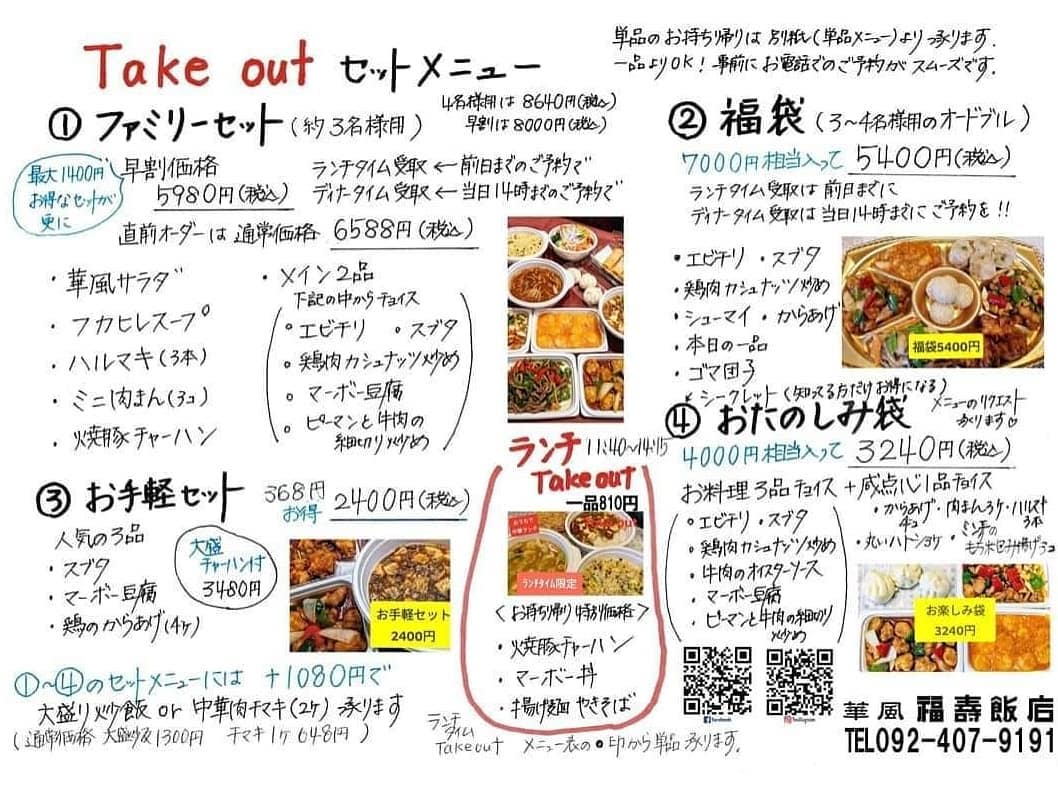 Take out セットメニュー
単品のお持ち帰りは 別紙(単品メニュー)より承ります.
一品よりOK! 事前にお電話でのご予約がスムーズです.
① ファミリーセット (約3名様用)
4名様用は 8640円(税込)
早割は8000円(税込)
最大1400円
お得なセットが
更に
早割価格
5980円(税込)
ランチタイム受取 ← 前日までのご予約で
ディナータイム受取 ← 当日14時までのご予約で
直前オーダーは 通常価格 6588円(税込)
・華風サラダ
・フカヒレスープ
・ハルマキ(3本)
・ミニ肉まん(3コ)
・焼豚チャーハン
・メイン2品
下記の中からチョイス
○エビチリ ○スブタ
○鶏肉カシュナッツ炒め
○マーボー豆腐
○ピーマンと牛肉の
細切り炒め
② 福袋 (3〜4名様用のオードブル)
7000円相当入って 5400円(税込)
ランチタイム受取は 前日までに
ディナータイム受取は当日14時までにご予約を!!
・エビチリ ・スブタ
・鶏肉カシュナッツ炒め
・シューマイ ・からあげ
・本日の一品
・ゴマ団子
・シークレット(知ってる方だけお得になる)
福袋5400円
③ お手軽セット
368円
お得
2400円(税込)
人気の3品
・スブタ
・マーボー豆腐
・鶏のからあげ(4ケ)
大盛
チャーハン付
3480円
お手軽セット
2400円
ランチ 11:40~14:15
Take out
一品810円
おうちで
中華ランチ
ランチタイム限定
<お持ち帰り特別価格>
・焼豚チャーハン
・マーボー丼
・揚げ麺 やきそば
④ おたのしみ袋
メニューのリクエスト
承ります♡
4000円相当入って 3240円(税込)
お料理3品チョイス + 咸点心1品チョイス
・エビチリ ・スブタ
・鶏肉カシュナッツ炒め
・牛肉のオイスターソース
・マーボー豆腐
・ピーマンと牛肉の細切り
炒め
・からあげ
・肉まん3ケ
・ハルマキ
3本
お楽しみ袋
3240円
①〜④のセットメニューには +1080円で
大盛り炒飯 or 中華肉チマキ(2ケ) 承ります
(通常価格 大盛炒飯1300円 チマキ1ケ 648円)
ランチ
タイム
Takeout メニュー表の●印から単品承ります.
facebook
Instagram
華風 福壽飯店
TEL092-407-9191